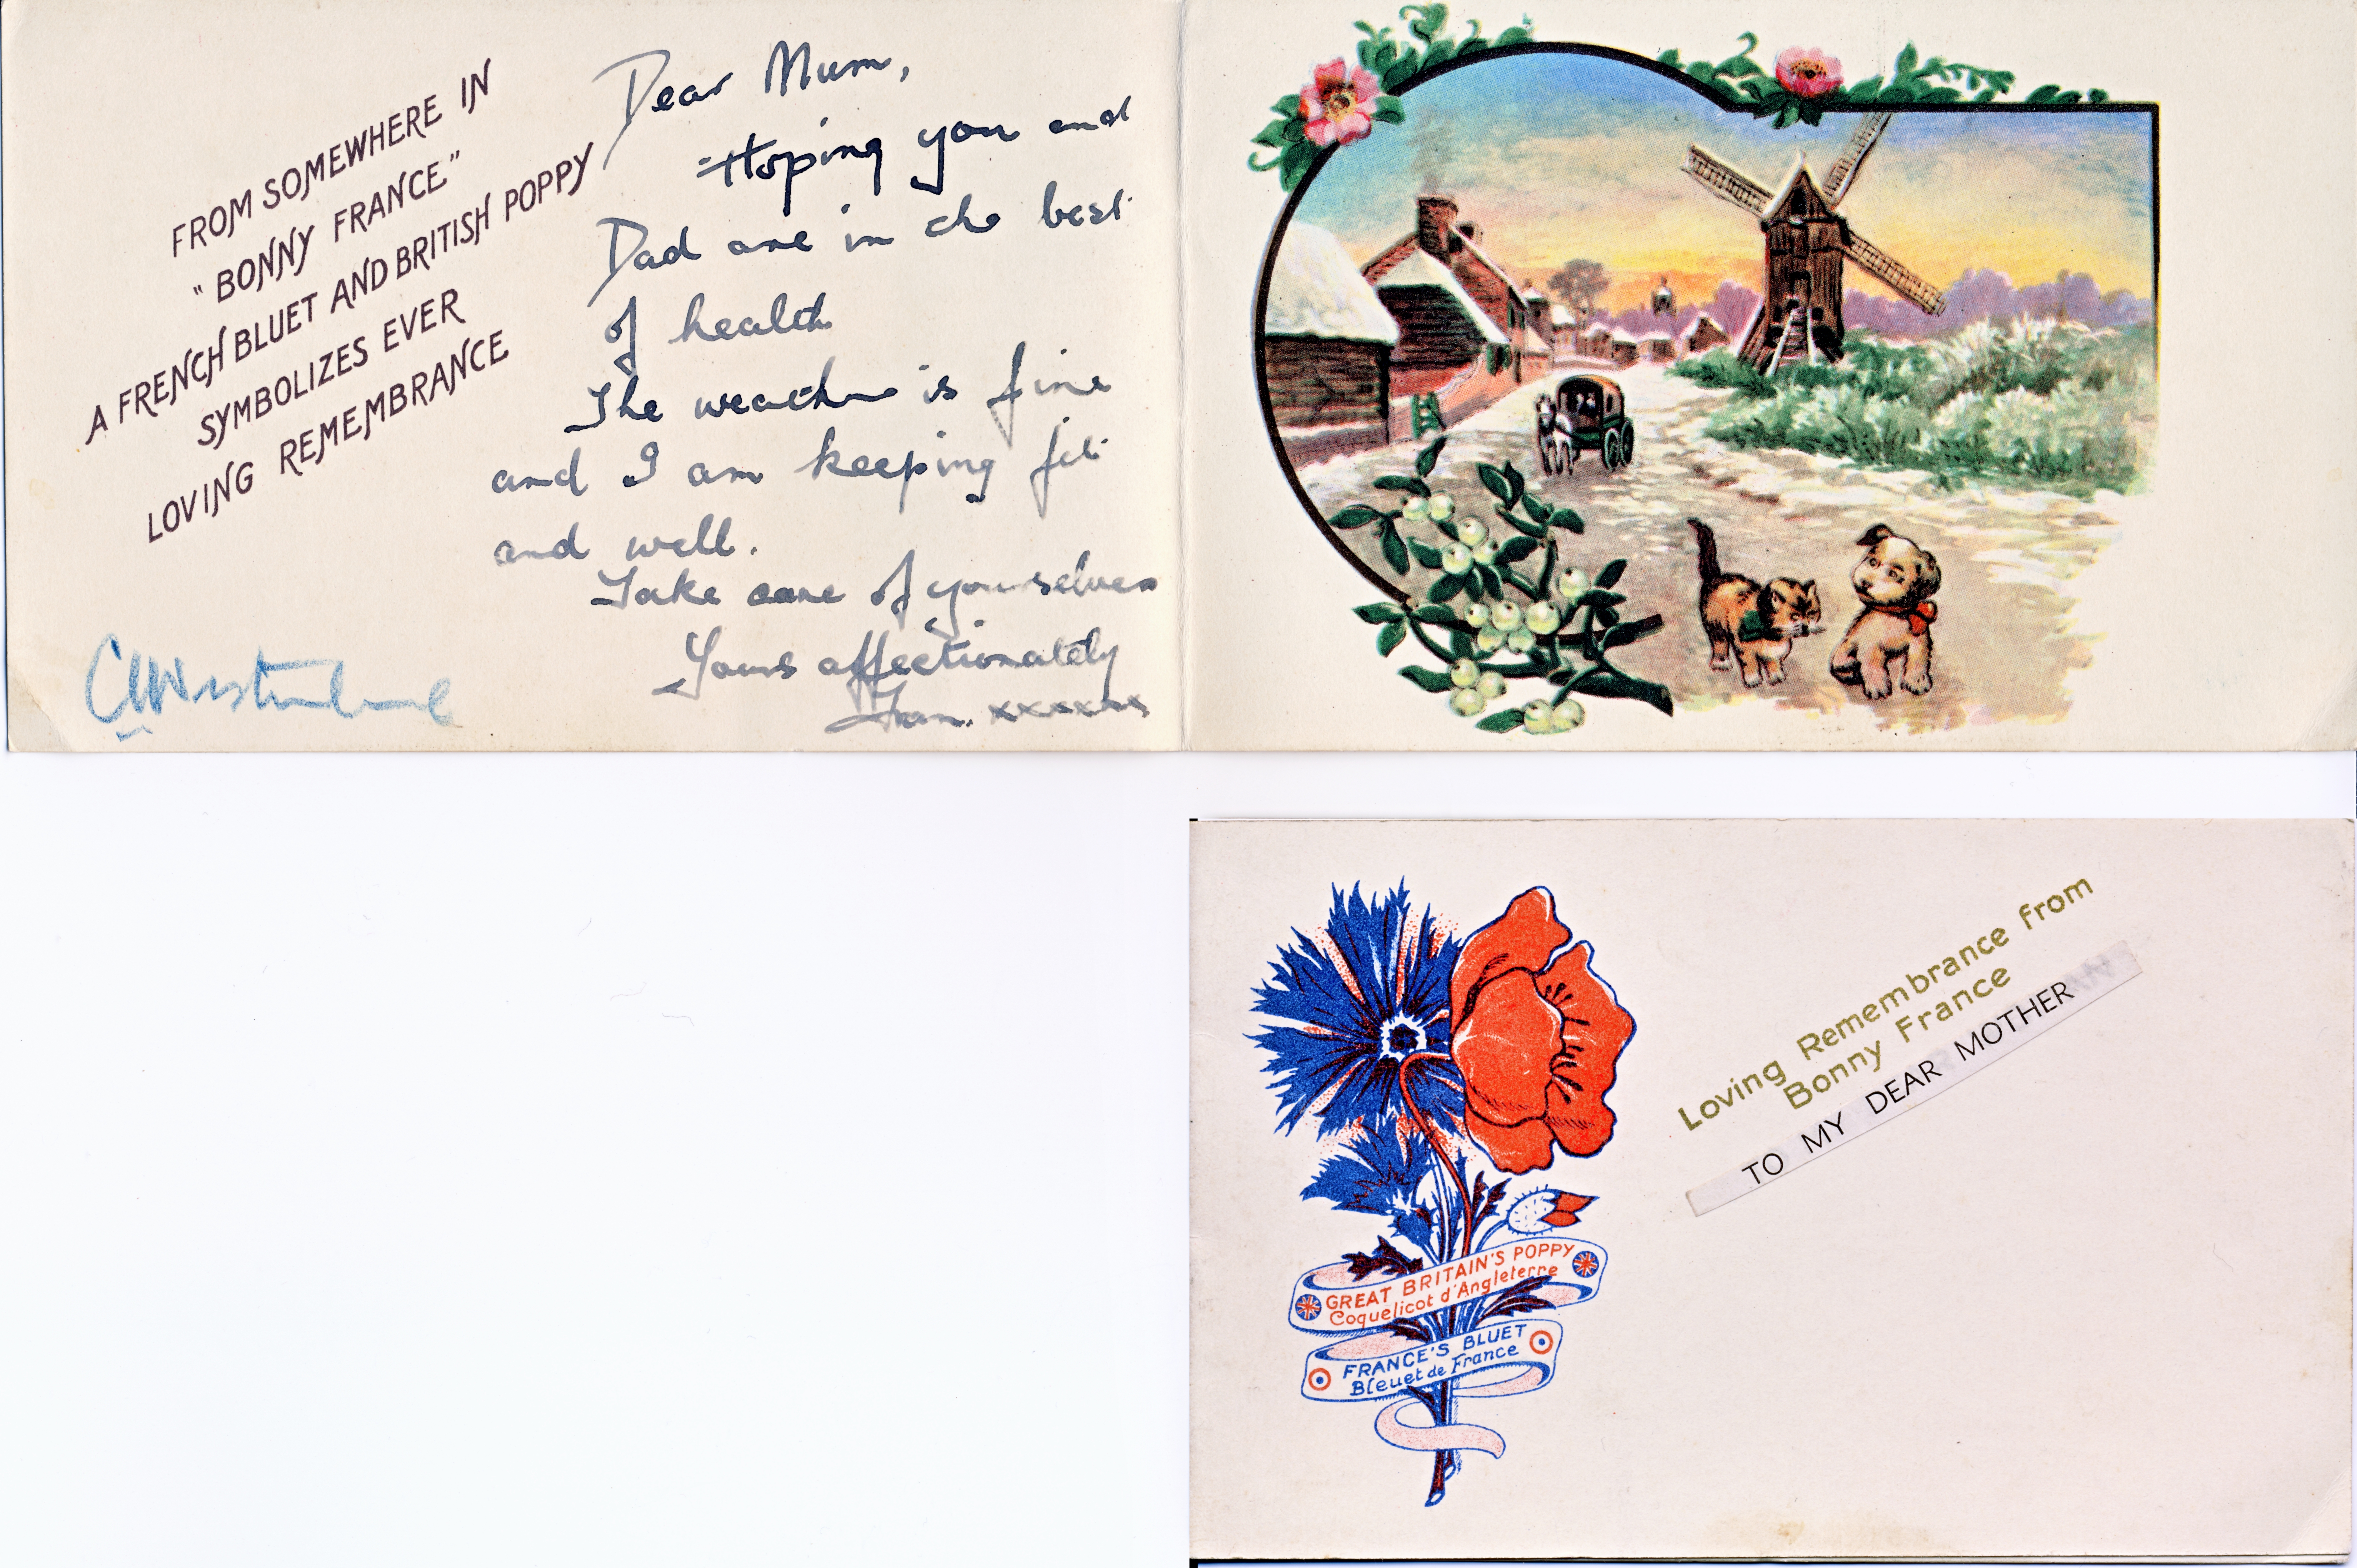 FROM SOMEWHERE IN
"BONNY FRANCE"
A FRENCH BLUET AND BRITISH POPPY
SYMBOLIZES EVER
LOVING REMEMBRANCE
Dear Mum,
Hoping you and
Dad are in the best
of health
The weather is fine
and I am keeping fit
and well.
Take care of yourselves
Yours affectionately
xxxxxx
Loving Remembrance from
Bonny France
TO MY DEAR MOTHER
GREAT BRITAIN'S POPPY
Coquelicot d'Angleterre
FRANCE'S BLUET
Bleuet de France